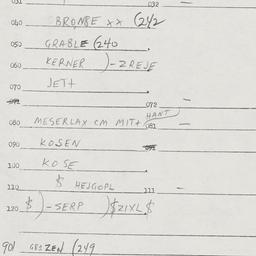 031 032 —
040 BRONSE xx (242
050 GRABLE (240
060 KERNER )-ZREJE
070 JETT
072 —
080 MESERLAX CM MITT HANT 081 —
090 KOSEN
100 KOSE
110 $ HEJGOPL 111 —
120 $ )-SERP )$ZIXL$
901 GBSZEN (249